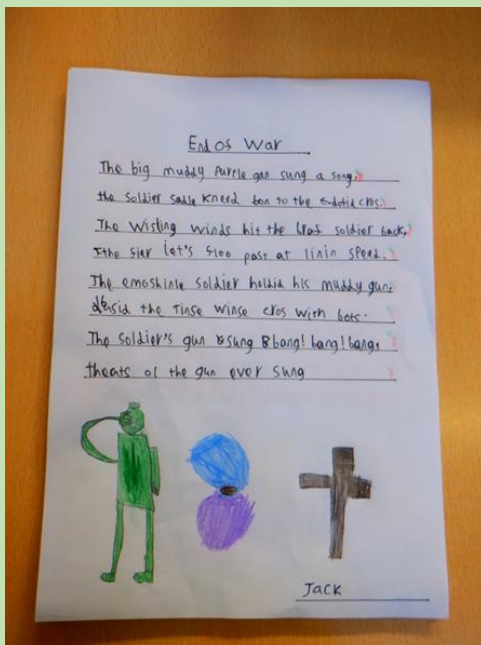 End of War
The big muddy purple gun sung a song,
the soldier sadle kneerd bon to the cros.
The Wistling winds hit the soldier back,
the let's past at linin speed.
The emoshinle soldier holdid his muddy gun,
the tinse winse cros with bots.
The soldier's gun sung bang! bang! bang,
theats ol the gun ever sung
Jack